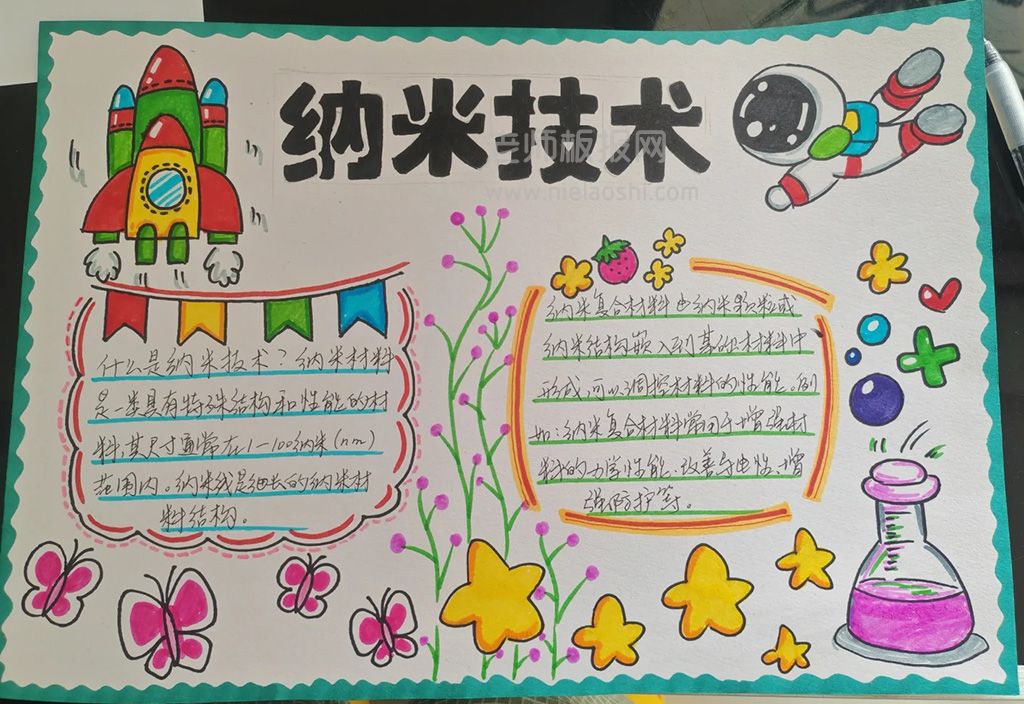 纳米技术
老师板报网
www.nielaoshi.com
什么是纳米技术？纳米材料
是一类具有特殊结构和性能的材
料，其尺寸通常在1-100纳米(nm)
范围内。纳米线是细长的纳米材
料结构。
纳米复合材料由纳米颗粒或
纳米结构嵌入到基础材料中
形成，可以调控材料的性能。例
如：纳米复合材料常用于增强材
料的力学性能、改善导电性、增
强防护等。